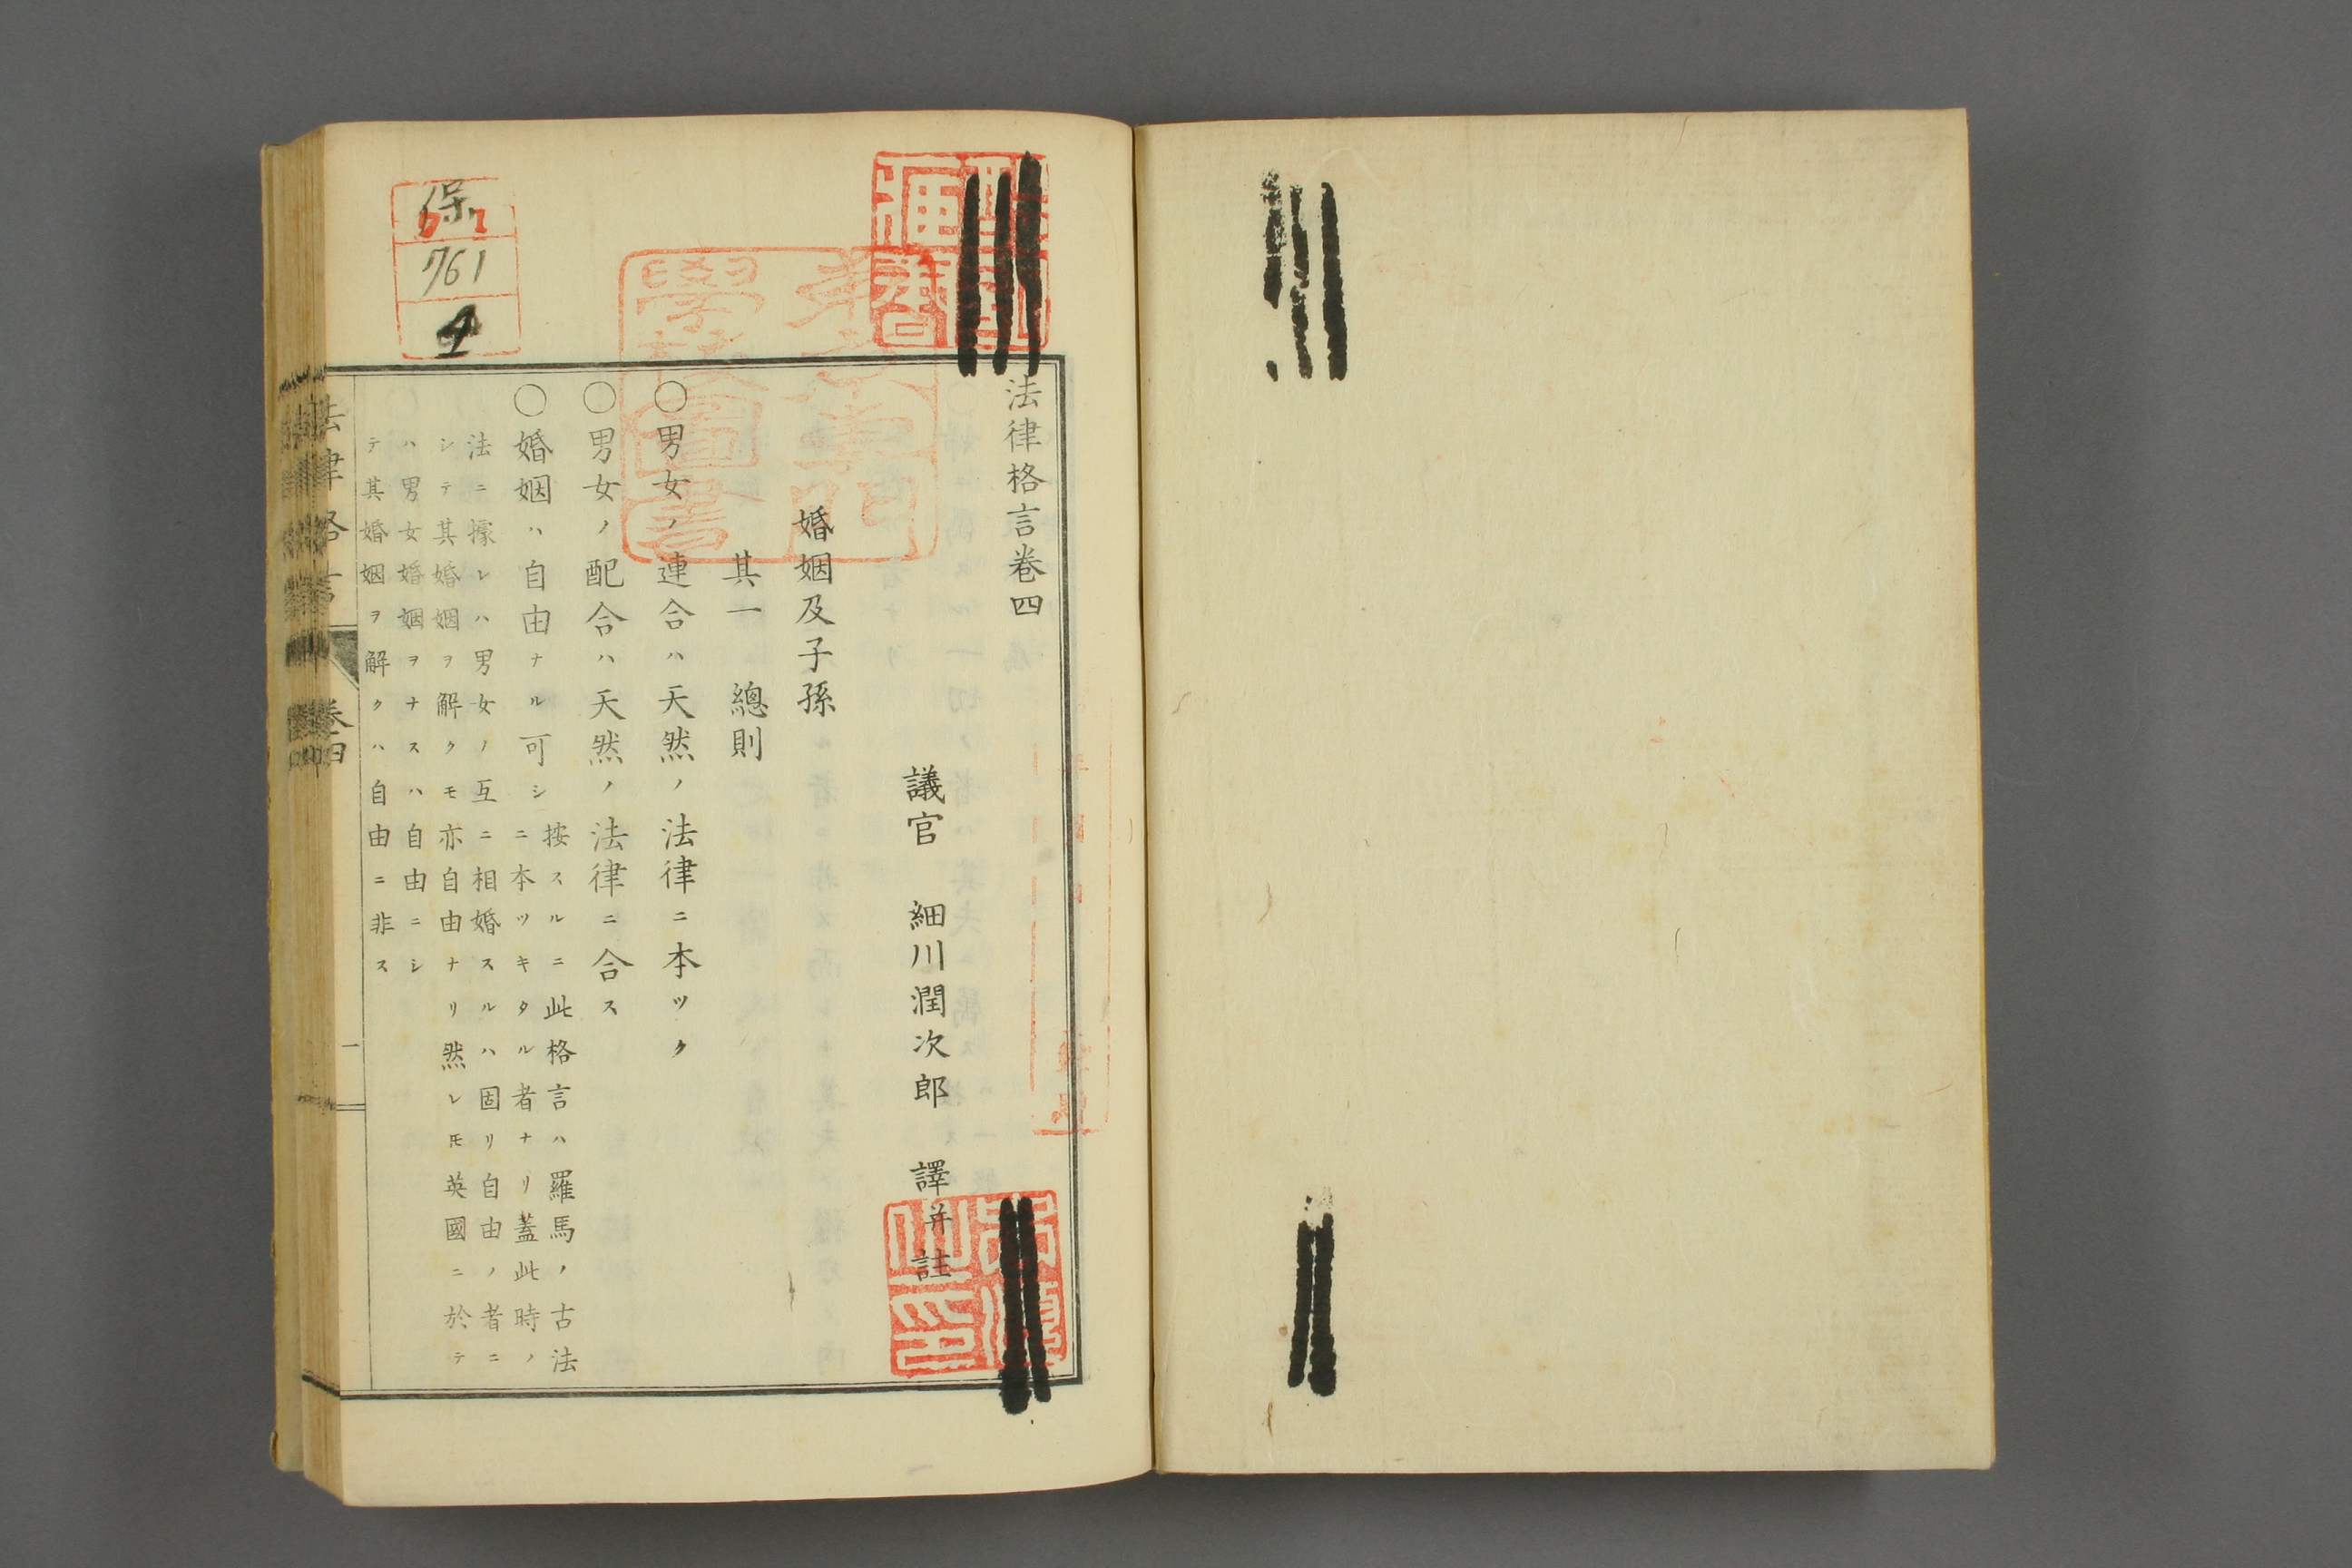 法律格言卷四
議官 細川潤次郎 譯并註
婚姻及子孫
其一 總則
○男女ノ連合ハ天然ノ法律ニ本ツク
○男女ノ配合ハ天然ノ法律ニ合ス
○婚姻ハ自由ナル可シ
按スルニ此格言ハ羅馬ノ古法
ニ本ツキタル者ナリ蓋此時ノ
法ニ據レハ男女ノ互ニ相婚スルハ固リ自由ノ者ニ
シテ其婚姻ヲ解クモ亦自由ナリ然レ𪜈英國ニ於テ
ハ男女婚姻ヲナスハ自由ニシ
テ其婚姻ヲ解クハ自由ニ非ス
法律格言 卷四
一
保
761
4